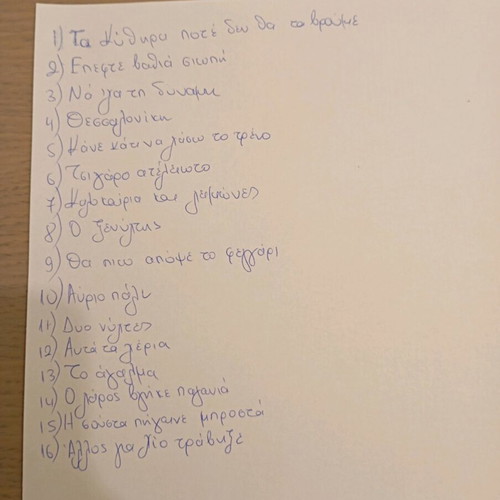 1) Τα Κύθηρα ποτέ δεν θα τα βρούμε
2) Επεφτε βαθιά σιωπή
3) Νά 'χα τη δύναμη
4) Θεσσαλονίκη
5) Κάνε κάτι να χάσω το τρένο
6) Τσιγάρο ατέλειωτο
7) και λεμόνες
8) Ο ξενύχτης
9) Θα πιω απόψε το φεγγάρι
10) Αύριο πάλι
11) Δυο νύχτες
12) Αυτά τα χέρια
13) Το άγαλμα
14) Ο χάρος βγήκε παγανιά
15) Η σούστα πήγαινε μπροστά
16) Άλλος για Χίο τράβηξε